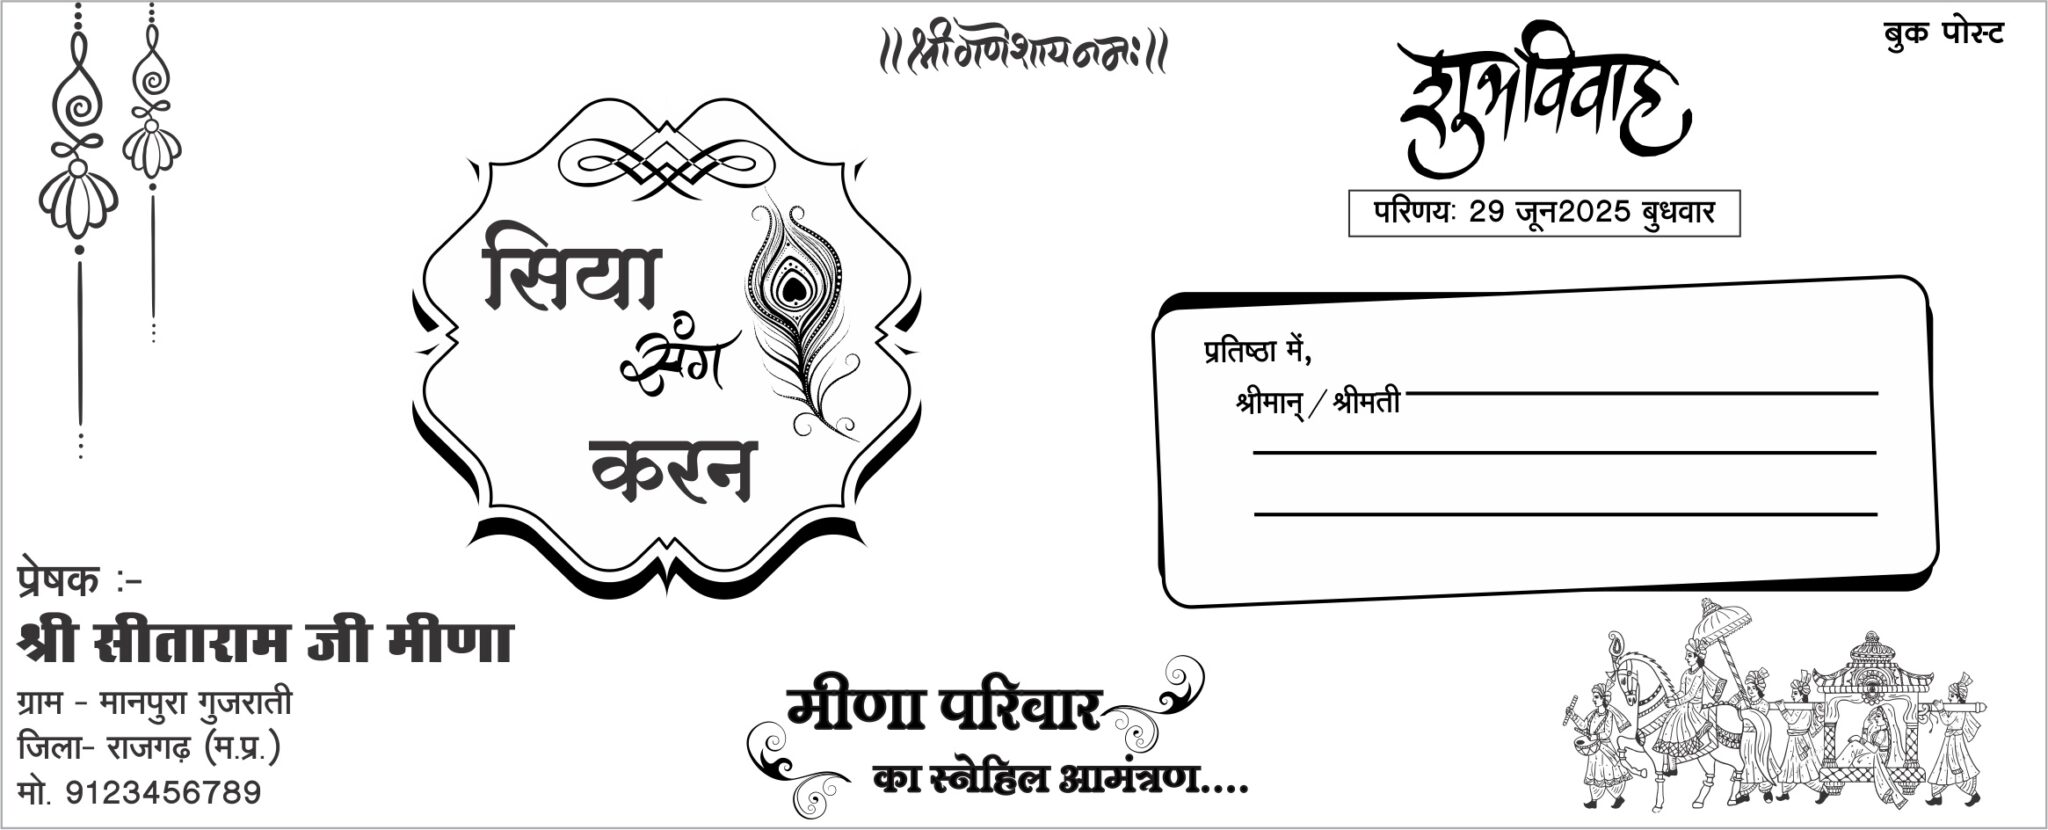 ।।श्री गणेशाय नमः।।
बुक पोस्ट
शुभविवाह
परिणयः 29 जून2025 बुधवार
सिया
संग
करन
प्रतिष्ठा में,
श्रीमान् / श्रीमती
प्रेषक :-
श्री सीताराम जी मीणा
ग्राम - मानपुरा गुजराती
जिला- राजगढ़ (म.प्र.)
मो. 9123456789
मीणा परिवार
का स्नेहिल आमंत्रण....